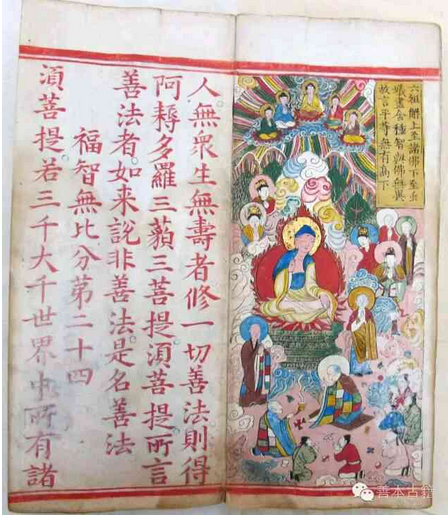 六祖解上至諸佛下至
盡含種智與佛無異
故言平等無有高下
人無眾生無壽者修一切善法則得
阿耨多羅三藐三菩提須菩提所言
善法者如来說非善法是名善法
福智無比分第二十四
須菩提若三千大千世界中所有諸
善本古籍